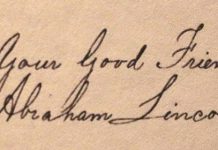 Your Good Frien
Abraham Linco